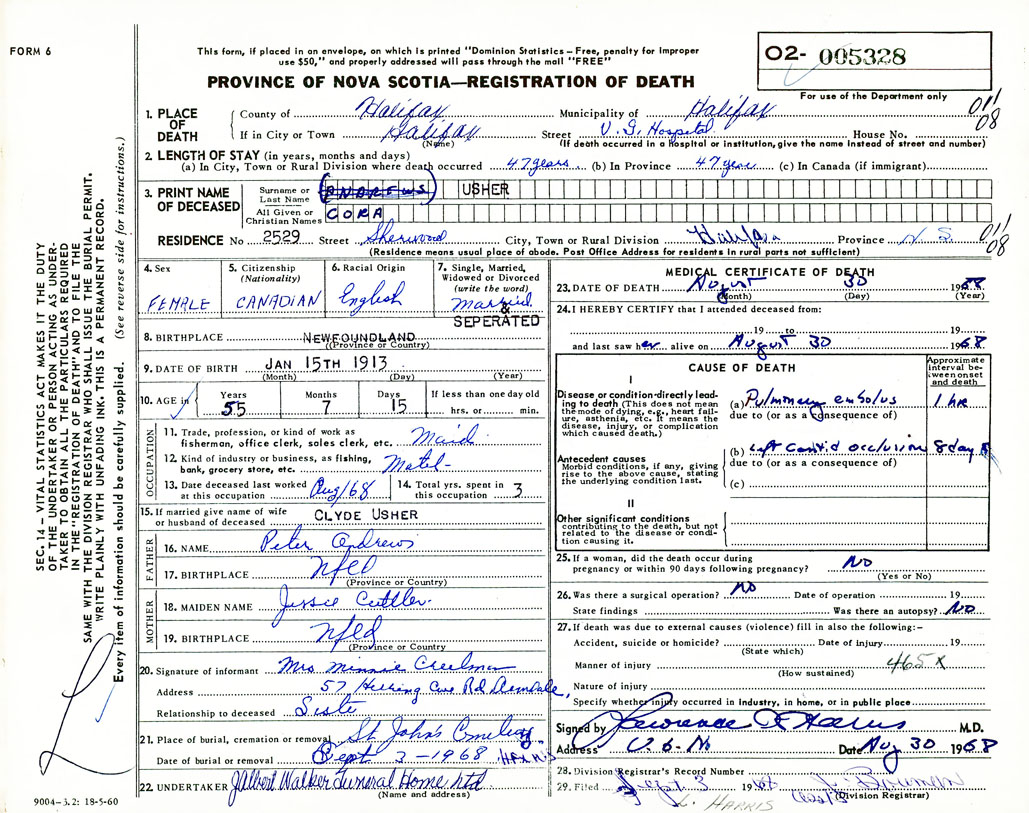 FORM 6
This form, if placed in an envelope, on which is printed "Dominion Statistics – Free, penalty for improper
use $50," and properly addressed will pass through the mail "FREE"
PROVINCE OF NOVA SCOTIA—REGISTRATION OF DEATH
02- 005328
For use of the Department only
011
08
1. PLACE OF DEATH
County of Halifax Municipality of Halifax
If in City or Town Halifax Street V. G. Hospital House No.
(Name) (If death occurred in a hospital or institution, give the name instead of street and number)
2. LENGTH OF STAY (in years, months and days)
(a) In City, Town or Rural Division where death occurred 47 years (b) In Province 47 years (c) In Canada (if immigrant)
3. PRINT NAME OF DECEASED
Surname or Last Name (ANDREWS) USHER
All Given or Christian Names CORA
RESIDENCE No 2529 Street Sherwood City, Town or Rural Division Halifax Province N.S.
011
08
(Residence means usual place of abode. Post Office Address for residents in rural parts not sufficient)
4. Sex
FEMALE
5. Citizenship
(Nationality)
CANADIAN
6. Racial Origin
English
7. Single, Married,
Widowed or Divorced
(write the word)
Married
&
SEPERATED
8. BIRTHPLACE NEWFOUNDLAND
(Province or Country)
9. DATE OF BIRTH JAN 15TH 1913
(Month) (Day) (Year)
10. AGE in
Years 55
Months 7
Days 15
If less than one day old
hrs. or min.
OCCUPATION
11. Trade, profession, or kind of work as
fisherman, office clerk, sales clerk, etc. Maid
12. Kind of industry or business, as fishing,
bank, grocery store, etc. Motel
13. Date deceased last worked
at this occupation Aug/68
14. Total yrs. spent in
this occupation 3
15. If married give name of wife
or husband of deceased CLYDE USHER
FATHER
16. NAME Peter Andrews
17. BIRTHPLACE Nfld
(Province or Country)
MOTHER
18. MAIDEN NAME Jessie Cuttler
19. BIRTHPLACE Nfld
(Province or Country
20. Signature of informant Mrs Minnie Creelman
Address 57 Herring Cove Rd Armdale,
Relationship to deceased Sister
21. Place of burial, cremation or removal St John's Cemetery
Date of burial or removal Sept 3 - 1968 HARRIS
22. UNDERTAKER J Albert Walker Funeral Home Ltd
(Name and address)
9004-3.2: 18-5-60
MEDICAL CERTIFICATE OF DEATH
23. DATE OF DEATH August 30 1968
(Month) (Day) (Year)
24. I HEREBY CERTIFY that I attended deceased from:
19 to 19
and last saw her alive on August 30 1968
CAUSE OF DEATH
Approximate
interval be-
tween onset
and death
I
Disease or condition directly lead-
ing to death (This does not mean
the mode of dying, e.g., heart fail-
ure, asthenia, etc. It means the
disease, injury, or complication
which caused death.)
(a) Pulmonary embolus 1 hr
due to (or as a consequence of)
Antecedent causes
Morbid conditions, if any, giving
rise to the above cause, stating
the underlying condition last.
(b) Left Carotid occlusion 8 days
due to (or as a consequence of)
(c)
II
Other significant conditions
contributing to the death, but not
related to the disease or condi-
tion causing it.
25. If a woman, did the death occur during
pregnancy or within 90 days following pregnancy? NO
(Yes or No)
26. Was there a surgical operation? NO Date of operation 19
State findings Was there an autopsy? NO
27. If death was due to external causes (violence) fill in also the following:–
Accident, suicide or homicide? Date of injury 19
(State which)
Manner of injury 465 X
(How sustained)
Nature of injury
Specify whether injury occurred in industry, in home, or in public place
Signed by Lawrence Harris M.D.
Address V. G. H. Date Aug 30 1968
28. Division Registrar's Record Number
29. Filed Sept 3 1968
(Division Registrar)
L. HARRIS
SEC. 14 – VITAL STATISTICS ACT MAKES IT THE DUTY
OF THE UNDERTAKER OR PERSON ACTING AS UNDER-
TAKER TO OBTAIN ALL THE PARTICULARS REQUIRED
IN THE "REGISTRATION OF DEATH" AND TO FILE THE
SAME WITH THE DIVISION REGISTRAR WHO SHALL ISSUE THE BURIAL PERMIT.
WRITE PLAINLY WITH UNFADING INK. THIS IS A PERMANENT RECORD.
Every item of information should be carefully supplied. (See reverse side for instructions.)